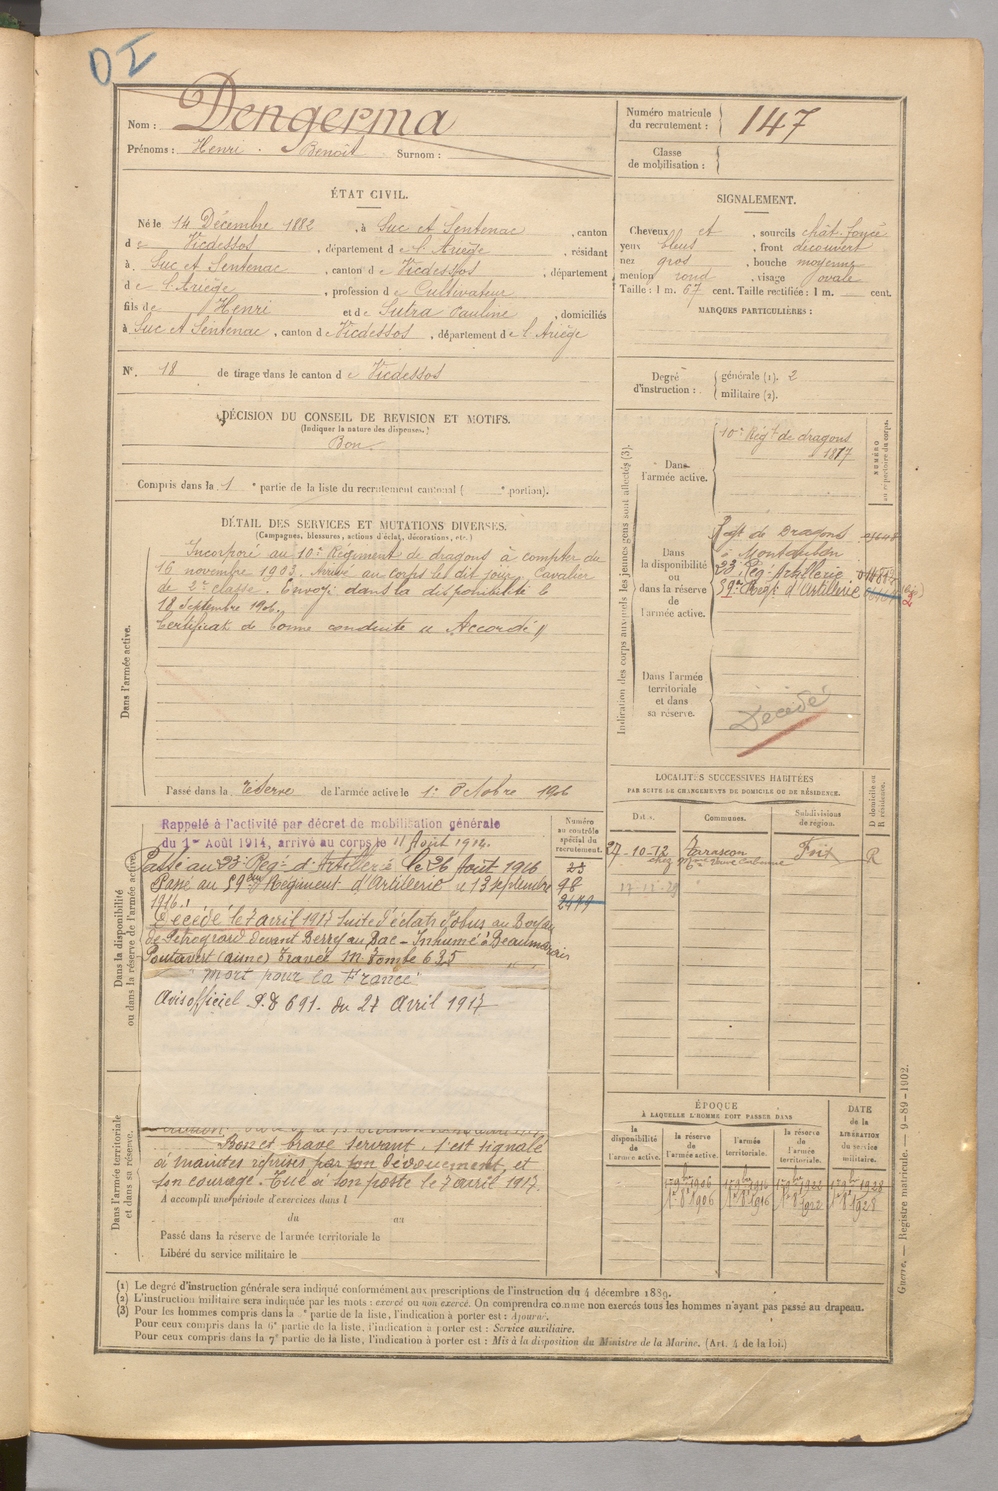 DI
Nom : Dengerma
Prénoms : Henri . Benoît Surnom :
Numéro matricule du recrutement : 147
Classe de mobilisation :
ÉTAT CIVIL.
Né le 14 Décembre 1882 , à Suc et Sentenac , canton
de Vicdessos , département de l'Ariège , résidant
à Suc et Sentenac , canton de Vicdessos , département
de l'Ariège , profession de Cultivateur
fils de Henri et de Sutra Pauline , domiciliés
à Suc et Sentenac , canton de Vicdessos , département de l'Ariège
N°. 18 de tirage dans le canton de Vicdessos
SIGNALEMENT.
Cheveux et , sourcils chât. foncé
yeux bleus , front découvert
nez gros , bouche moyenne
menton rond , visage ovale
Taille : 1 m. 67 cent. Taille rectifiée : 1 m. cent.
MARQUES PARTICULIÈRES :
Degré d'instruction : générale (1). 2
militaire (2).
DÉCISION DU CONSEIL DE REVISION ET MOTIFS.
(Indiquer la nature des dispenses.)
Bon
Compris dans la 1 e partie de la liste du recrutement cantonal ( e portion).
DÉTAIL DES SERVICES ET MUTATIONS DIVERSES.
(Campagnes, blessures, actions d'éclat, décorations, etc.)
Dans l'armée active.
Incorporé au 10e Régiment de dragons à compter du
16 novembre 1903. Arrivé au corps le dit jour, Cavalier
de 2e classe. Envoyé dans la disponibilité le
18 Septembre 1906.
Certificat de bonne conduite « Accordé »
Passé dans la réserve de l'armée active le 1er Octobre 1906
Indication des corps auxquels les jeunes gens sont affectés (3).
NUMÉRO au répertoire du corps.
Dans l'armée active.
10e Régt de dragons
1817
Dans la disponibilité ou dans la réserve de l'armée active.
Régt de Dragons
à Montauban
23e Rég. Artillerie
39e Régt d'Artillerie
Dans l'armée territoriale et dans sa réserve.
Décédé
LOCALITÉS SUCCESSIVES HABITÉES
PAR SUITE DE CHANGEMENTS DE DOMICILE OU DE RÉSIDENCE.
Dates. Communes. Subdivisions de région. D domicile ou R résidence.
27-10-12 Tarascon Foix R
Dans la disponibilité ou dans la réserve de l'armée active.
Numéro au contrôle spécial du recrutement.
Rappelé à l'activité par décret de mobilisation générale
du 1er Août 1914, arrivé au corps le 11 Août 1914.
Passé au 23e Régt d'Artillerie le 26 Août 1916
23
Passé au 39ème Régiment d'Artillerie le 13 septembre
98
1916.
2479
Décédé le 7 avril 1917 Suite d'éclats d'obus au Boyau
de Pétrograd devant Berry au Bac - Inhumé à Beaumarais
Pontavert (Aisne) Travée M Tombe 635
"Mort pour la France"
Avis officiel P.D 691. du 27 Avril 1917
Dans l'armée territoriale et dans sa réserve.
Bon et brave servant, s'est signalé
à maintes reprises par son dévouement, et
son courage. Tué à son poste le 7 avril 1917.
A accompli une période d'exercices dans l
du au
Passé dans la réserve de l'armée territoriale le
Libéré du service militaire le
ÉPOQUE
À LAQUELLE L'HOMME DOIT PASSER DANS
DATE de la LIBÉRATION du service militaire.
la disponibilité de l'armée active. la réserve de l'armée active. l'armée territoriale. la réserve de l'armée territoriale.
1r 8e 1906 1r 8e 1916 1r 8e 1922 1r 8e 1928
(1) Le degré d'instruction générale sera indiqué conformément aux prescriptions de l'instruction du 4 décembre 1889.
(2) L'instruction militaire sera indiquée par les mots : exercé ou non exercé. On comprendra comme non exercés tous les hommes n'ayant pas passé au drapeau.
(3) Pour les hommes compris dans la e partie de la liste, l'indication à porter est : Ajourné.
Pour ceux compris dans la 6e partie de la liste, l'indication à porter est : Service auxiliaire.
Pour ceux compris dans la 7e partie de la liste, l'indication à porter est : Mis à la disposition du Ministre de la Marine. (Art. 4 de la loi.)
Guerre. — Registre matricule. — 9-89-1902.